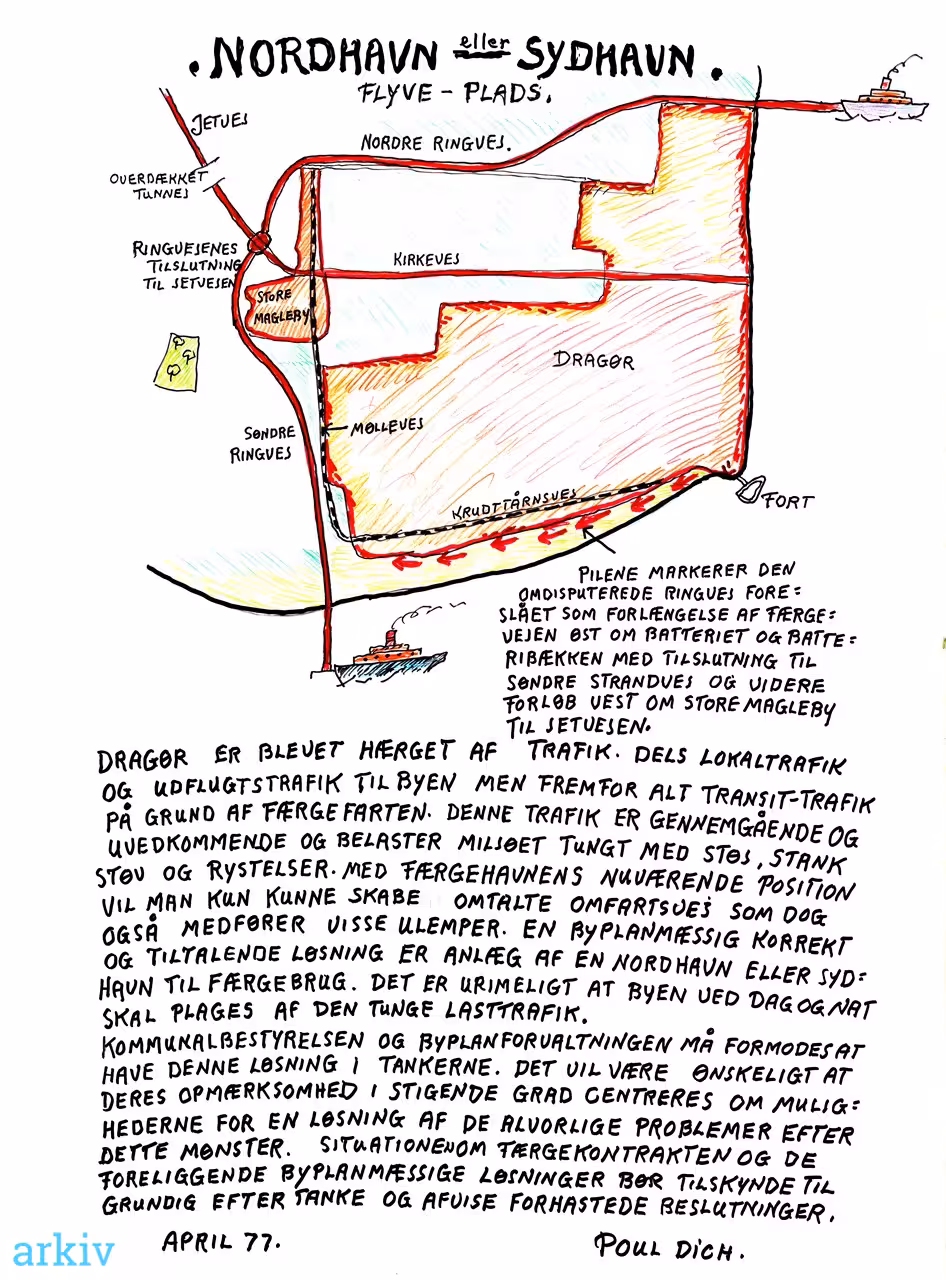 . NORDHAVN eller SYDHAVN .
FLYVE - PLADS.
JETVEJ
NORDRE RINGVEJ.
OVERDÆKKET
TUNNEJ
RINGVEJENES
TILSLUTNING
TIL JETVEJEN
KIRKEVEJ
STORE
MAGLEBY
DRAGØR
MØLLEVEJ
SØNDRE
RINGVEJ
KRUDTTÅRNSVEJ
FORT
PILENE MARKERER DEN
OMDISPUTEREDE RINGVEJ FORE=
SLÅET SOM FORLÆNGELSE AF FÆRGE=
VEJEN ØST OM BATTERIET OG BATTE=
RIBÆKKEN MED TILSLUTNING TIL
SØNDRE STRANDVEJ OG VIDERE
FORLØB VEST OM STORE MAGLEBY
TIL JETVEJEN.
DRAGØR ER BLEVET HÆRGET AF TRAFIK. DELS LOKALTRAFIK
OG UDFLUGTSTRAFIK TIL BYEN MEN FREMFOR ALT TRANSIT-TRAFIK
PÅ GRUND AF FÆRGEFARTEN. DENNE TRAFIK ER GENNEMGÅENDE OG
UVEDKOMMENDE OG BELASTER MILJØET TUNGT MED STØJ, STANK
STØV OG RYSTELSER. MED FÆRGEHAVNENS NUVÆRENDE POSITION
VIL MAN KUN KUNNE SKABE OMTALTE OMFARTSVEJ SOM DOG
OGSÅ MEDFØRER VISSE ULEMPER. EN BYPLANMÆSSIG KORREKT
OG TILTALENDE LØSNING ER ANLÆG AF EN NORDHAVN ELLER SYD=
HAVN TIL FÆRGEBRUG. DET ER URIMELIGT AT BYEN VED DAG OG NAT
SKAL PLAGES AF DEN TUNGE LASTTRAFIK.
KOMMUNALBESTYRELSEN OG BYPLANFORVALTNINGEN MÅ FORMODES AT
HAVE DENNE LØSNING I TANKERNE. DET VIL VÆRE ØNSKELIGT AT
DERES OPMÆRKSOMHED I STIGENDE GRAD CENTRERES OM MULIG=
HEDERNE FOR EN LØSNING AF DE ALVORLIGE PROBLEMER EFTER
DETTE MØNSTER. SITUATIONEN OM FÆRGEKONTRAKTEN OG DE
FORELIGGENDE BYPLANMÆSSIGE LØSNINGER BØR TILSKYNDE TIL
GRUNDIG EFTERTANKE OG AFVISE FORHASTEDE BESLUTNINGER.
APRIL 77.
POUL DICH.
arkiv